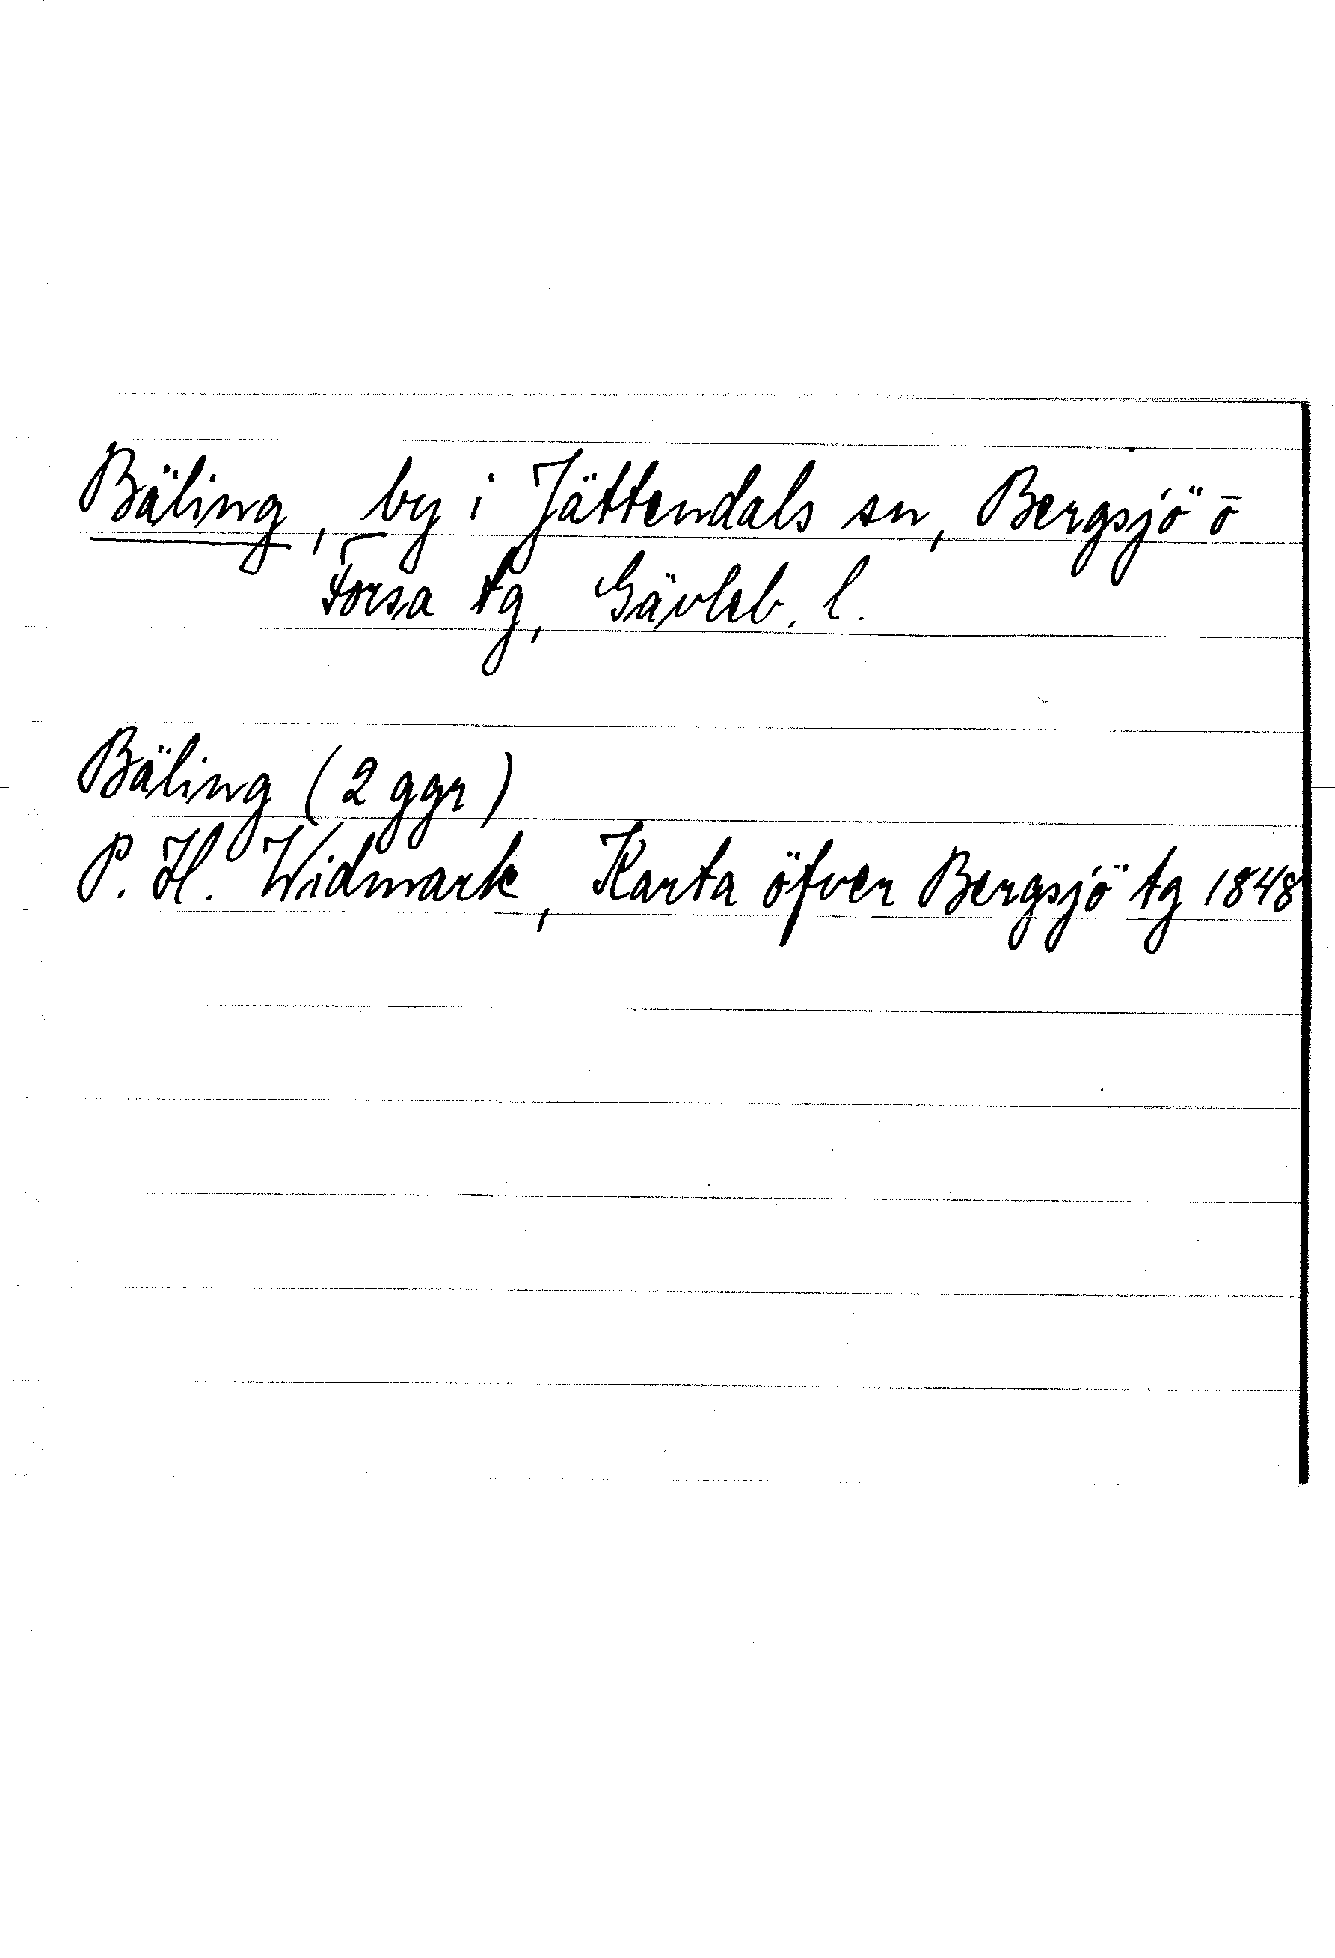 Bäling, by i Jättendals sn, Bergsjö o
Forsa tg, Gävleb. l.
Bäling (2 ggr)
P. H. Widmark, Karta öfver Bergsjö tg 1848